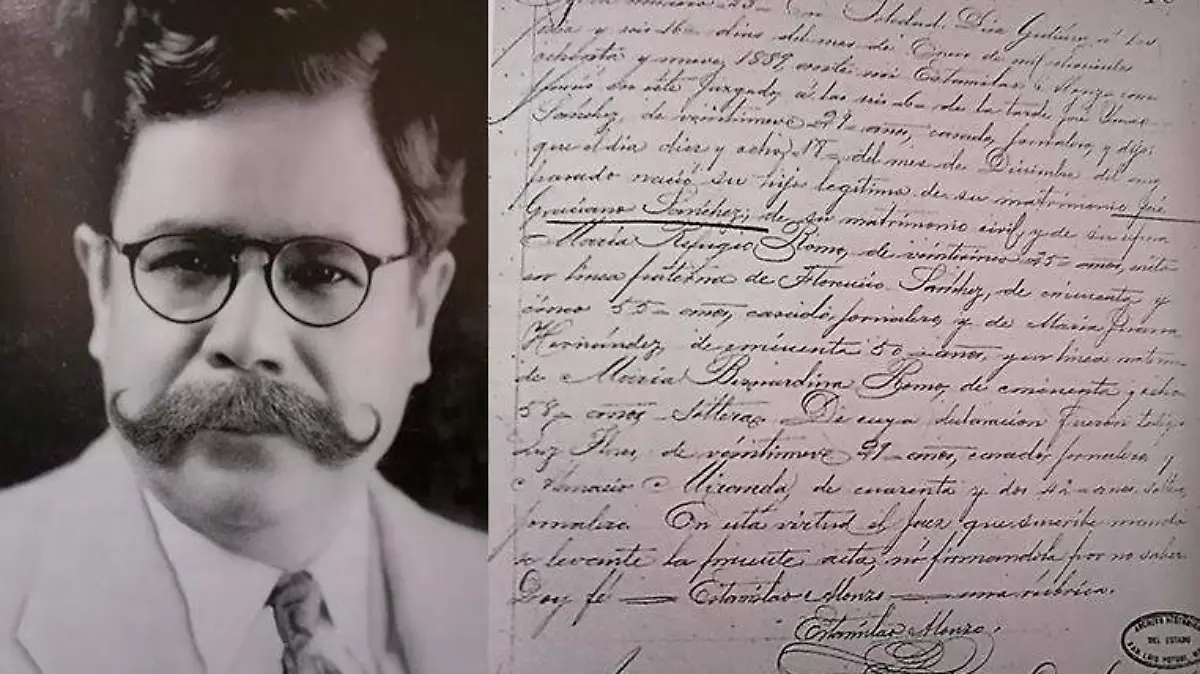 23 En Soledad Díez Gutiérrez á los
y seis 16 dias del mes de Enero de mil ochocientos
ochenta y nueve, 1889 ante mi Estanislao Alonzo
en este Juzgado, á las seis de la tarde José
Sánchez, de veintinueve 29 años, casado, jornalero, y dijo:
que el día diez y ocho 18 del mes de Diciembre del año
pasado nació su hijo legítimo de su matrimonio José
Graciano Sánchez, de su matrimonio civil, y de su esposa
María Refugio Romo, de veinticinco 25 años, nieto
en línea paterna de Florencio Sánchez, de cincuenta y
cinco 55 años, casado, jornalero, y de María Juana
Hernández, de cincuenta 50 años, y en línea materna
de María Bernardina Romo, de cincuenta y ocho
58 años Soltera. De cuya declaracion fueron testigos
Luz Flores, de veintinueve 29 años, casado jornalero y
Atanacio Miranda, de cuarenta y dos 42 años, soltero
jornalero. En esta virtud el Juez que suscribe mandó
se levante la presente acta, no firmandola por no saber.
Doy fé — Estanislao Alonzo — una rúbrica.
Estanislao Alonzo.
ARCHIVO HISTORICO
DEL ESTADO
SAN LUIS POTOSI